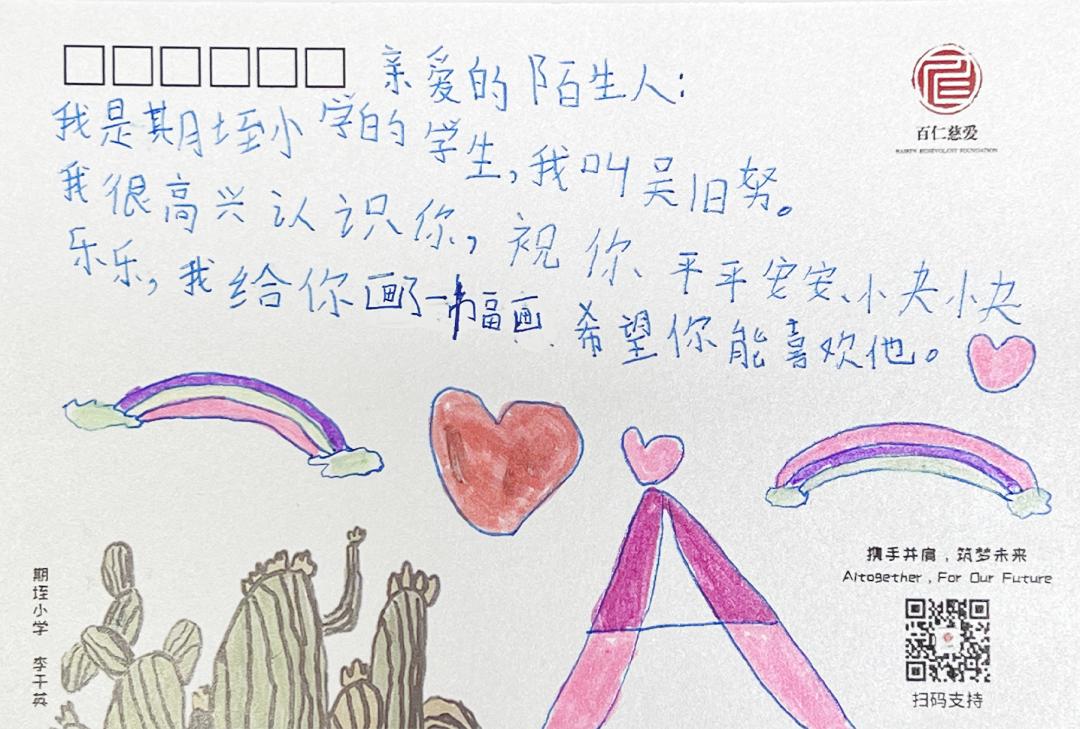 亲爱的陌生人:
我是期垤小学的学生,我叫吴旧努。
我很高兴认识你,祝你、平平安安、小夬小夬
乐乐,我给你画了一幅画.希望你能喜欢他。
百仁慈爱
BAIREN BENEVOLENT FOUNDATION
携手并肩,筑梦未来
Altogether , For Our Future
扫码支持
期垤小学 李干英